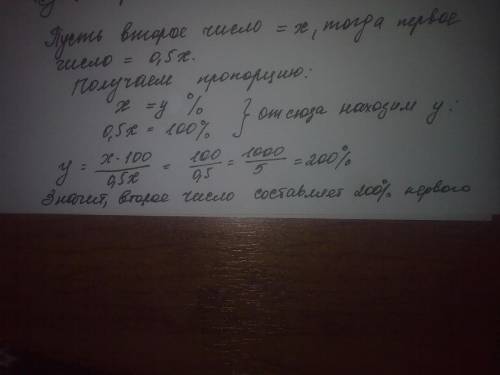 Пусть второе число = x, тогда первое
число = 0,5x.
Получаем пропорцию:
x = y %
0,5x = 100% } отсюда находим y:
y = x·100/0,5x = 100/0,5 = 1000/5 = 200%
Значит, второе число составляет 200% первого